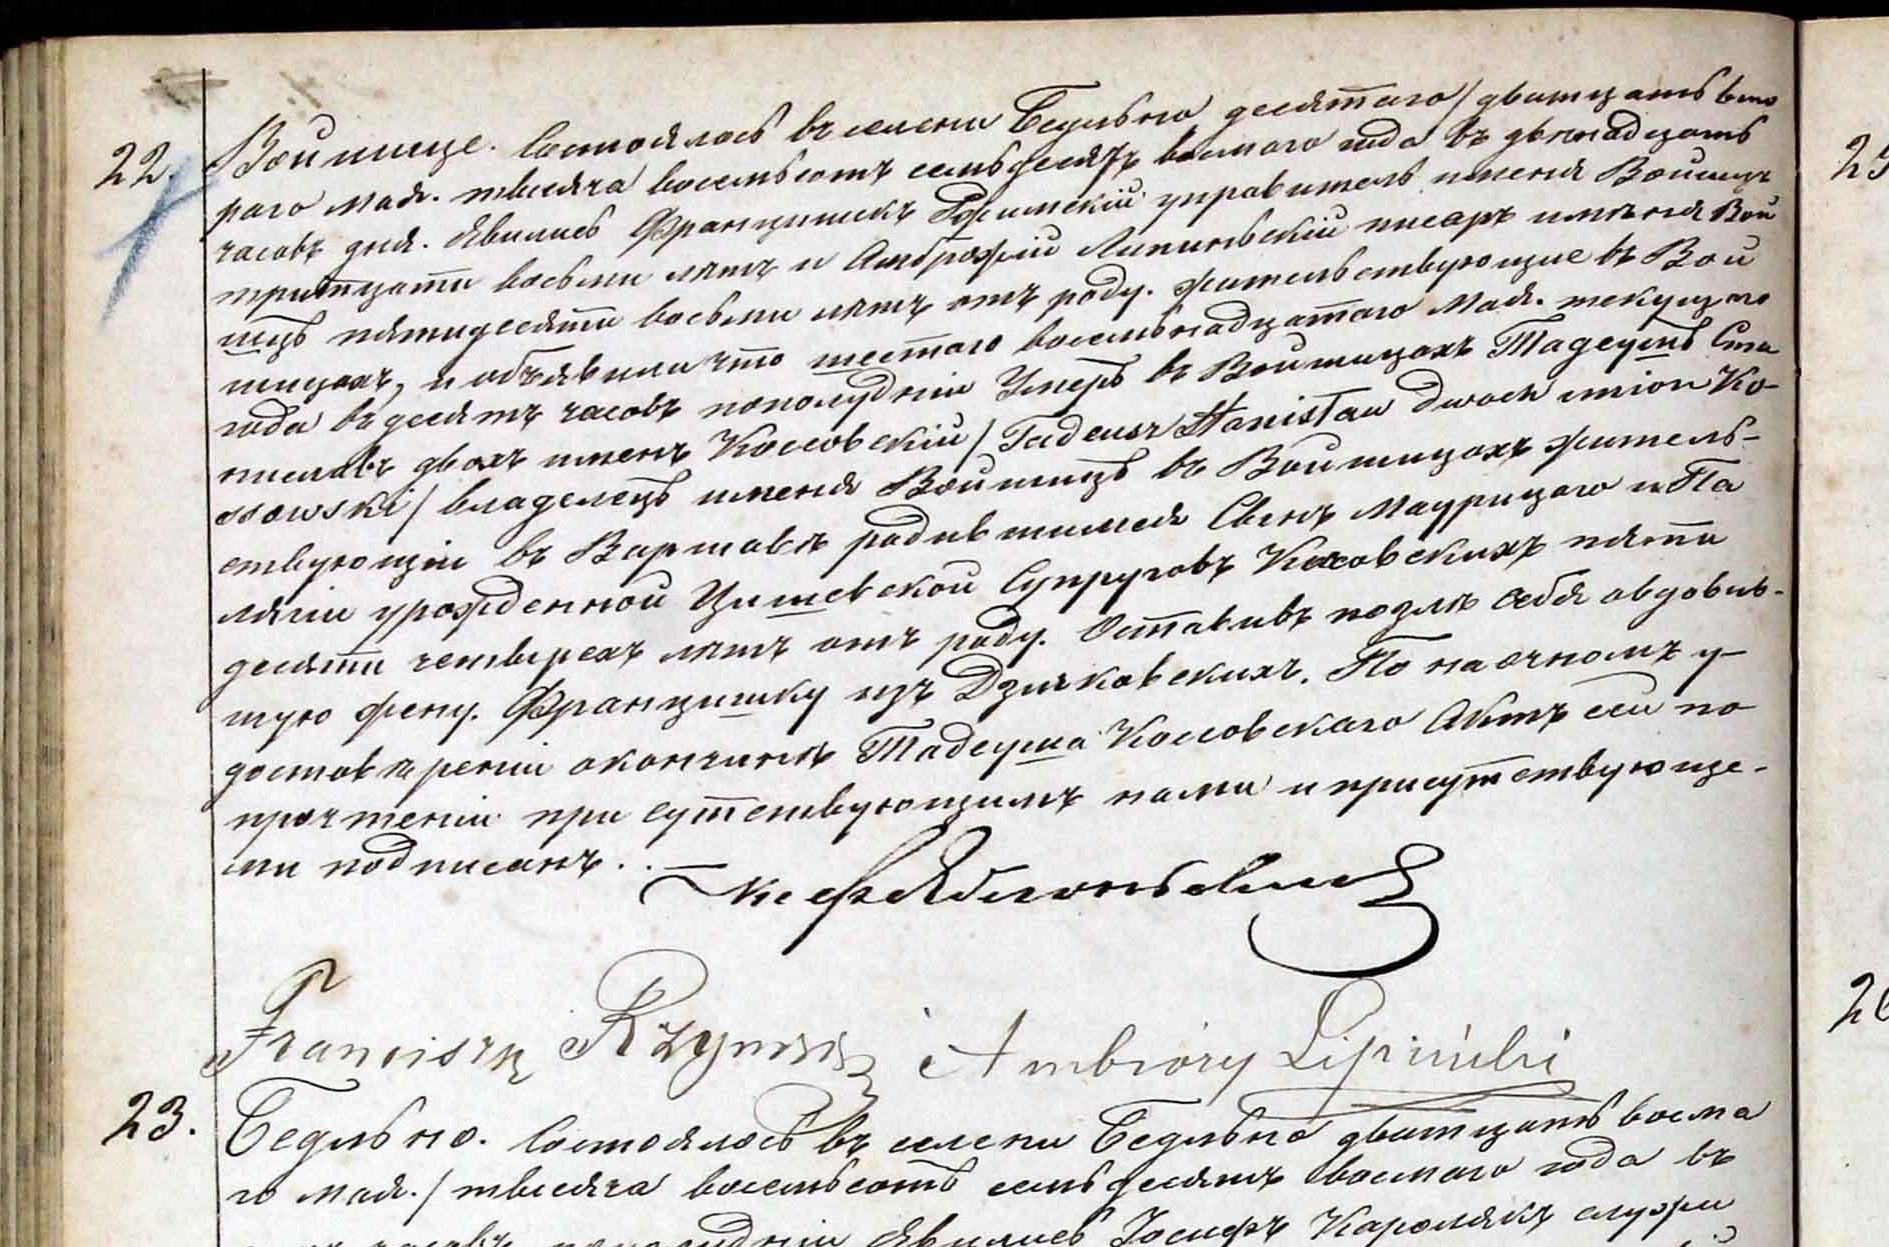 22. Войшице. Состоялось въ селени Бедльно десятаго/дватцать вто
раго мая. тысяча восемьсотъ семьдесятъ восмаго года въ двѣнадцать
часовъ дня. Явились Францишекъ Ржимскій управитель имения Войшицъ
тритцати восьми лѣтъ и Амброжій Липиньскій писарь имѣния Вой
шицъ пятидесяти восьми лѣтъ отъ роду. жительствующие въ Вой
шицахъ, и объявили что шестаго восемьнадцатаго мая. текущаго
года въ десять часовъ пополудніи Умеръ въ Войшицахъ Тадеушъ Ста
ниславъ двохъ именъ Коссовскій / Tadeusz Stanisław dwoch imion Ko-
ssowski / владелецъ имения Войшицъ въ Войшицахъ житель-
ствующій въ Варшавѣ родившийся Сынъ Маурицаго и Па
лягіи урожденной Цишевской Супруговъ Косовскихъ пяти
десяти четырехъ лѣтъ отъ роду. Оставивъ позлѣ себя овдовѣв-
шую жену. Францишку изъ Дзячковскихъ. По наочномъ у-
достовѣреніи окончинѣ Тадеуша Коссовскаго Актъ сей по
прочтеніи при сутствующимъ нами и присутствующе-
ми подписанъ..—
Кс Ф Яблоньскій
Franciszek Rżymski Ambroży Lipiński
23. Бедльно. Состоялось въ селени Бедльно дватцать восма
го мая./ тысяча восемьсотъ семьдесятъ восмаго года въ
часовъ пополудніи Явились Іосифъ Каролякъ служи